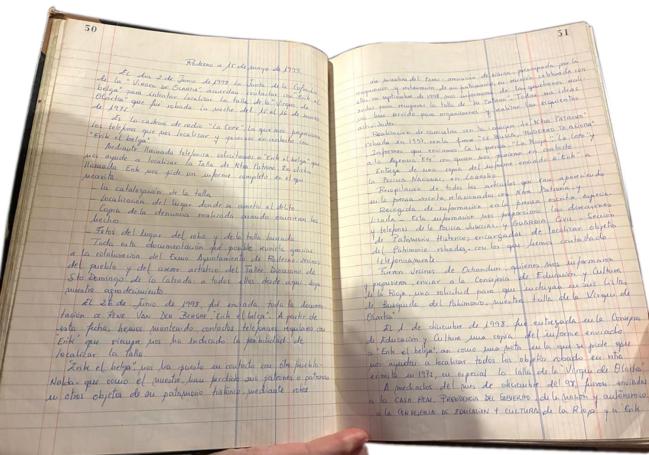 50
Rodezno a 15 de mayo de 1999.
El día 2 de Junio de 1998 la Junta de la Cofradía
de la "Virgen de Olartia" acuerdan contactar con "Erik el
belga" para intentar localizar la talla de la "Virgen de
Olartia" que fué robada la noche del 15 al 16 de
de 1972.
Es la cadena de radio "La Cope" la que nos proporciona
los teléfonos que nos localizan y ponen en contacto con
"Erik el belga"
Mediante llamada telefónica, solicitamos a "Erik el belga" que
nos ayude a localizar la Talla de Ntra Patrona. En dicha
llamada Erik nos pide un informe completo, en el que
necesita:
- la catalogación de la talla
- Localización del lugar donde se cometió el delito
- Copia de la denuncia realizada cuando ocurrieron los
hechos
- Fotos del lugar del robo y de la talla buscada
Toda esta documentación fué posible reunirla gracias
a la colaboración del Excmo Ayuntamiento de Rodezno, vecinos
del pueblo y del asesor artístico del Taller Diocesano de
Sto Domingo de la Calzada, a todos ellos desde aquí
nuestro agradecimiento.
El 26 de Junio de 1998, fué enviada toda la documen-
tación a Rene Van Den Berghe "Erik el belga". A partir de
esta fecha, hemos mantenido contactos telefónicos regulares con
Erik que siempre nos ha indicado la posibilidad de
localizar la talla.
"Erik el belga" nos ha puesto en contacto con otro pueblo
que como el nuestro han perdido sus patronos o patronas
u otros objetos de su patrimonio histórico mediante robos
51
por la
de su patrimonio, en
ellos en septiembre de 1998,
para recuperar la talla de "su Patrona".
nos han servido para organizarnos y
actividades:
Realización de consultas sobre "el
robada en 1979,
Informes que enviamos a la prensa "La Rioja", "La Cope" y
a la Agencia Efe, con quien nos pusimos en contacto
Entrega de una copia del informe enviado a Erik a
la Policía Nacional en Logroño
- Recopilación de todos los artículos que han aparecido
en la prensa escrita relacionados con Ntra Patrona y
Recogida de información en la prensa escrita
Esta información nos proporciona las direcciones
y teléfonos de la Policía Judicial y Guardia Civil - Sección
de Patrimonio Histórico; encargadas de localizar objetos
del Patrimonio robados, con los que hemos contactado
telefónicamente.
Fueron vecinos de Ochanduri, quienes nos informaron
y propusieron enviar a la Consejería de Educación y Cultura
de La Rioja, una solicitud para que incluyan en sus listas
de búsqueda del Patrimonio, nuestra talla de la Virgen de
Olartia
El 1 de diciembre de 1998, fué entregada en la Consejería
de Educación y Cultura una copia del informe enviado
a "Erik el belga", así como una nota en la que se pide que
nos ayuden a localizar todos los objetos robados en Ntra
ermita en 1972, en especial la talla de la "Virgen de Olartia"
A mediados del mes de diciembre del 98, fueron enviadas
a la CASA REAL, PRESIDENCIA DEL GOBIERNO, de la NACIÓN y autonómico,
a la CONSEJERÍA DE EDUCACIÓN Y CULTURA de La Rioja y a Erik